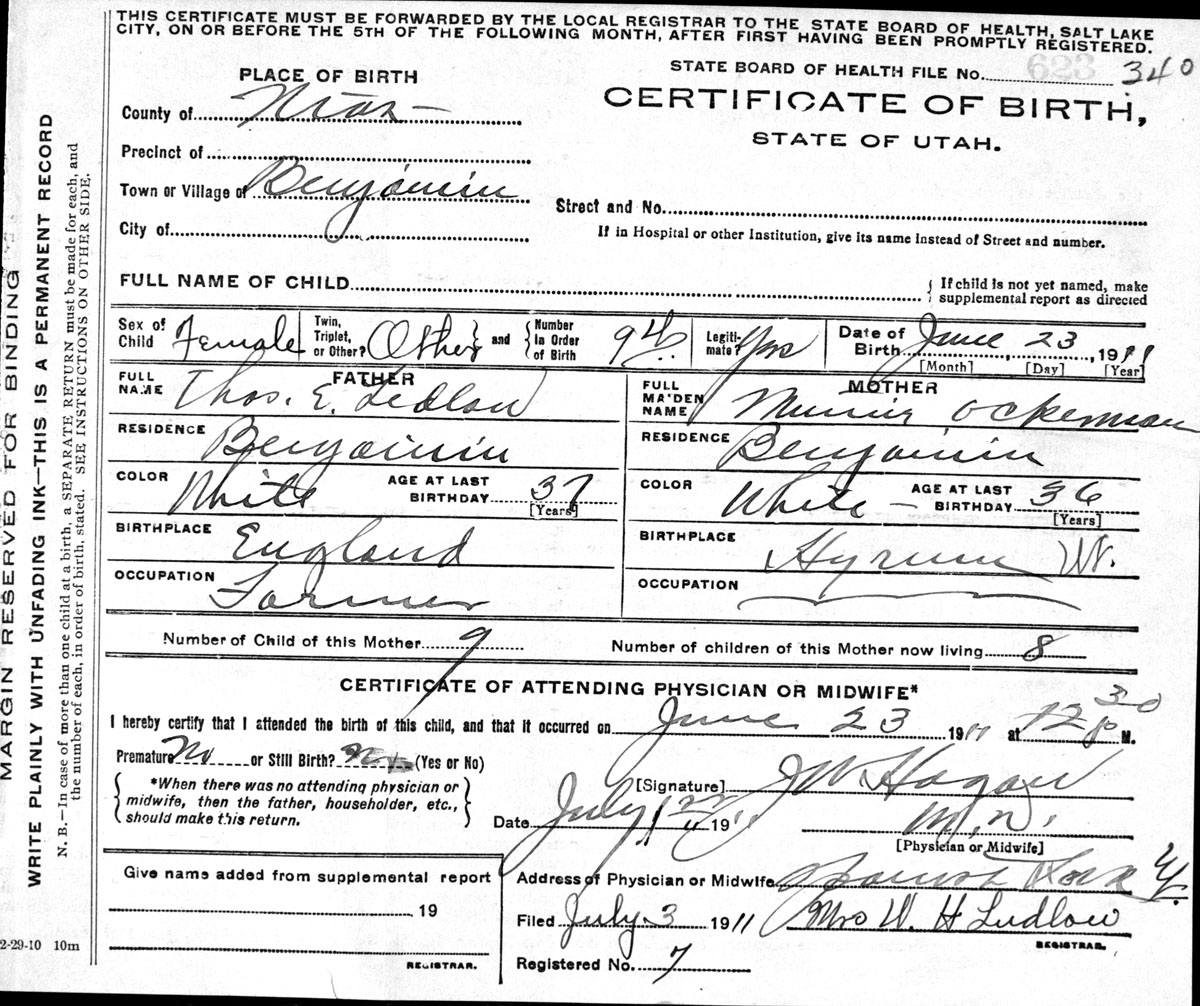 THIS CERTIFICATE MUST BE FORWARDED BY THE LOCAL REGISTRAR TO THE STATE BOARD OF HEALTH, SALT LAKE
CITY, ON OR BEFORE THE 5TH OF THE FOLLOWING MONTH, AFTER FIRST HAVING BEEN PROMPTLY REGISTERED.
STATE BOARD OF HEALTH FILE No. 623 340
PLACE OF BIRTH
CERTIFICATE OF BIRTH,
STATE OF UTAH.
County of
Precinct of
Town or Village of Benjamin
City of
Street and No.
If in Hospital or other Institution, give its name instead of Street and number.
FULL NAME OF CHILD
{ If child is not yet named, make
supplemental report as directed
Sex of Child Female
Twin, Triplet, or Other? Other } and { Number in Order of Birth 9th
Legitimate? Yes
Date of Birth June 23, 1911
[Month] [Day] [Year]
FATHER
FULL NAME Thos. E. Ludlow
RESIDENCE Benjamin
COLOR White AGE AT LAST BIRTHDAY 37
[Years]
BIRTHPLACE England
OCCUPATION Farmer
MOTHER
FULL MAIDEN NAME Minnie Ockerman
RESIDENCE Benjamin
COLOR White AGE AT LAST BIRTHDAY 36
[Years]
BIRTHPLACE Hyrum Ut.
OCCUPATION
Number of Child of this Mother 9 Number of children of this Mother now living 8
CERTIFICATE OF ATTENDING PHYSICIAN OR MIDWIFE*
I hereby certify that I attended the birth of this child, and that it occurred on June 23 1911 at 12 30 P M.
Premature No or Still Birth? No (Yes or No)
{ *When there was no attending physician or
midwife, then the father, householder, etc.,
should make this return. }
[Signature] J W Hagan
M.D.
[Physician or Midwife]
Date July 1911
Address of Physician or Midwife Spanish Fork Ut.
Filed July 3 1911 Mrs W. H Ludlow
REGISTRAR.
Registered No. 7
Give name added from supplemental report
19
REGISTRAR.
MARGIN RESERVED FOR BINDING
WRITE PLAINLY WITH UNFADING INK—THIS IS A PERMANENT RECORD
N. B.—In case of more than one child at a birth, a SEPARATE RETURN must be made for each, and
the number of each, in order of birth, stated. SEE INSTRUCTIONS ON OTHER SIDE.
2-29-10 10m